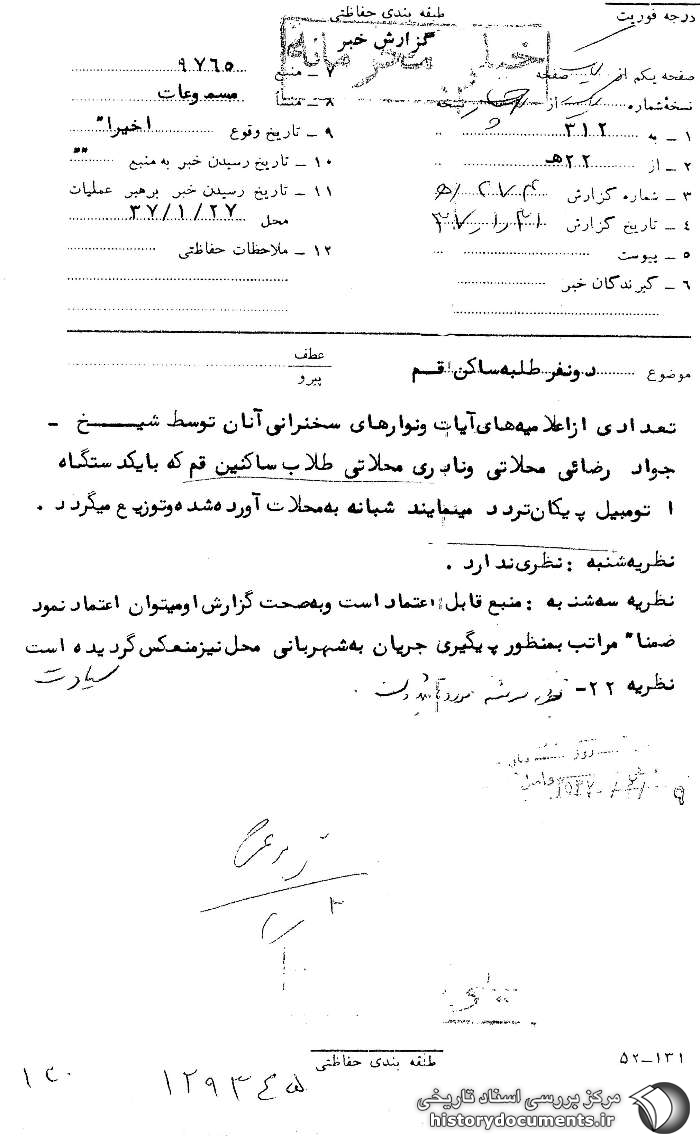 درجه فوریت
طبقه بندی حفاظتی
گزارش خبر
خیلی محرمانه
صفحه یکم از یک صفحه
نسخه شماره یک از چهار نسخه
۱ - به ۳۱۲
۲ - از ۲۲ھ
۳ - شماره گزارش
۴ - تاریخ گزارش
۵ - پیوست
۶ - گیرندگان خبر
۷ - منبع ۹۷۶۵
۸ - منشأ مسموعات
۹ - تاریخ وقوع اخیرا"
۱۰ - تاریخ رسیدن خبر به منبع ""
۱۱ - تاریخ رسیدن خبر برهبر عملیات
محل ۳۷/۱/۲۷
۱۲ - ملاحظات حفاظتی
موضوع دونفر طلبه ساکن قم
عطف
پیرو
تعدادی ازاعلامیه‌های آیات ونوارهای سخنرانی آنان توسط شیخ -
جواد رضائی محلاتی ونادری محلاتی طلاب ساکنین قم که بایکدستگاه
اتومبیل پیکان تردد مینمایند شبانه به محلات آورده شده وتوزیع میگردد .
نظریه شنبه : نظری ندارد .
نظریه سه شنبه : منبع قابل اعتماد است وبه صحت گزارش اومیتوان اعتماد نمود
ضمنا" مراتب بمنظور پیگیری جریان به شهربانی محل نیزمنعکس گردیده است
سیادت
نظریه ۲۲- نظریه سه شنبه مورد تائید است .
طبقه بندی حفاظتی
۵۲-۱۳۱
۱۲۹۳۴۵
مرکز بررسی اسناد تاریخی
historydocuments.ir